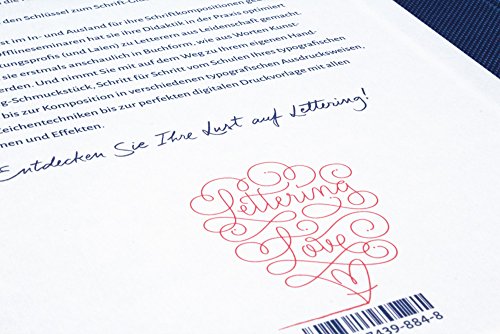 den Schlüssel zum Schrift-
st im In- und Ausland für ihre Schriftkompositionen
offlineseminaren hat sie ihre Didaktik in der Praxis optimiert
tungsprofis (und Laien) zu Letterern aus Leidenschaft gemacht.
sie erstmals anschaulich in Buchform, wie aus Worten Kunst-
erden. Und nimmt Sie mit auf dem Weg zu Ihrem eigenen Hand-
g-Schmuckstück, Schritt für Schritt vom Schulen Ihres typografischen
bis zur Komposition in verschiedenen typografischen Ausdrucksweisen,
Zeichentechniken bis zur perfekten digitalen Druckvorlage mit allen
nen und Effekten.
Entdecken Sie Ihre Lust auf Lettering!
Lettering
Love
439-884-8